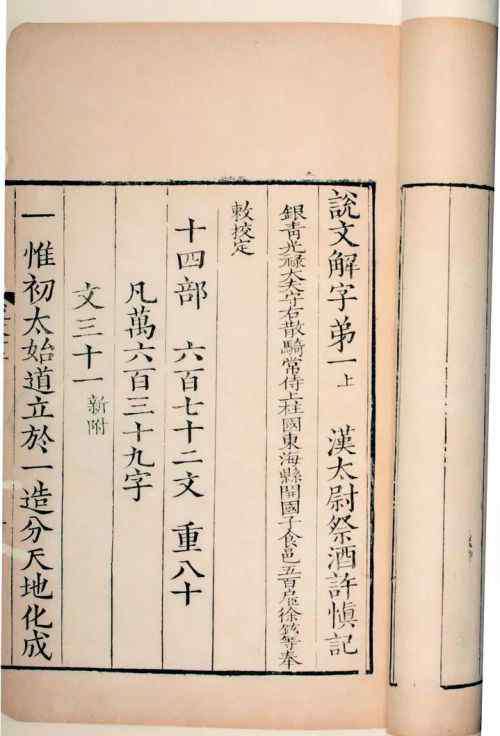 說文解字弟一上 漢太尉祭酒許慎記
銀青光祿大夫守右散騎常侍上柱國東海縣開國子食邑五百戶徐鉉等奉
敕校定
十四部 六百七十二文 重八十
凡萬六百三十九字
文三十一新附
一惟初太始道立於一造分天地化成